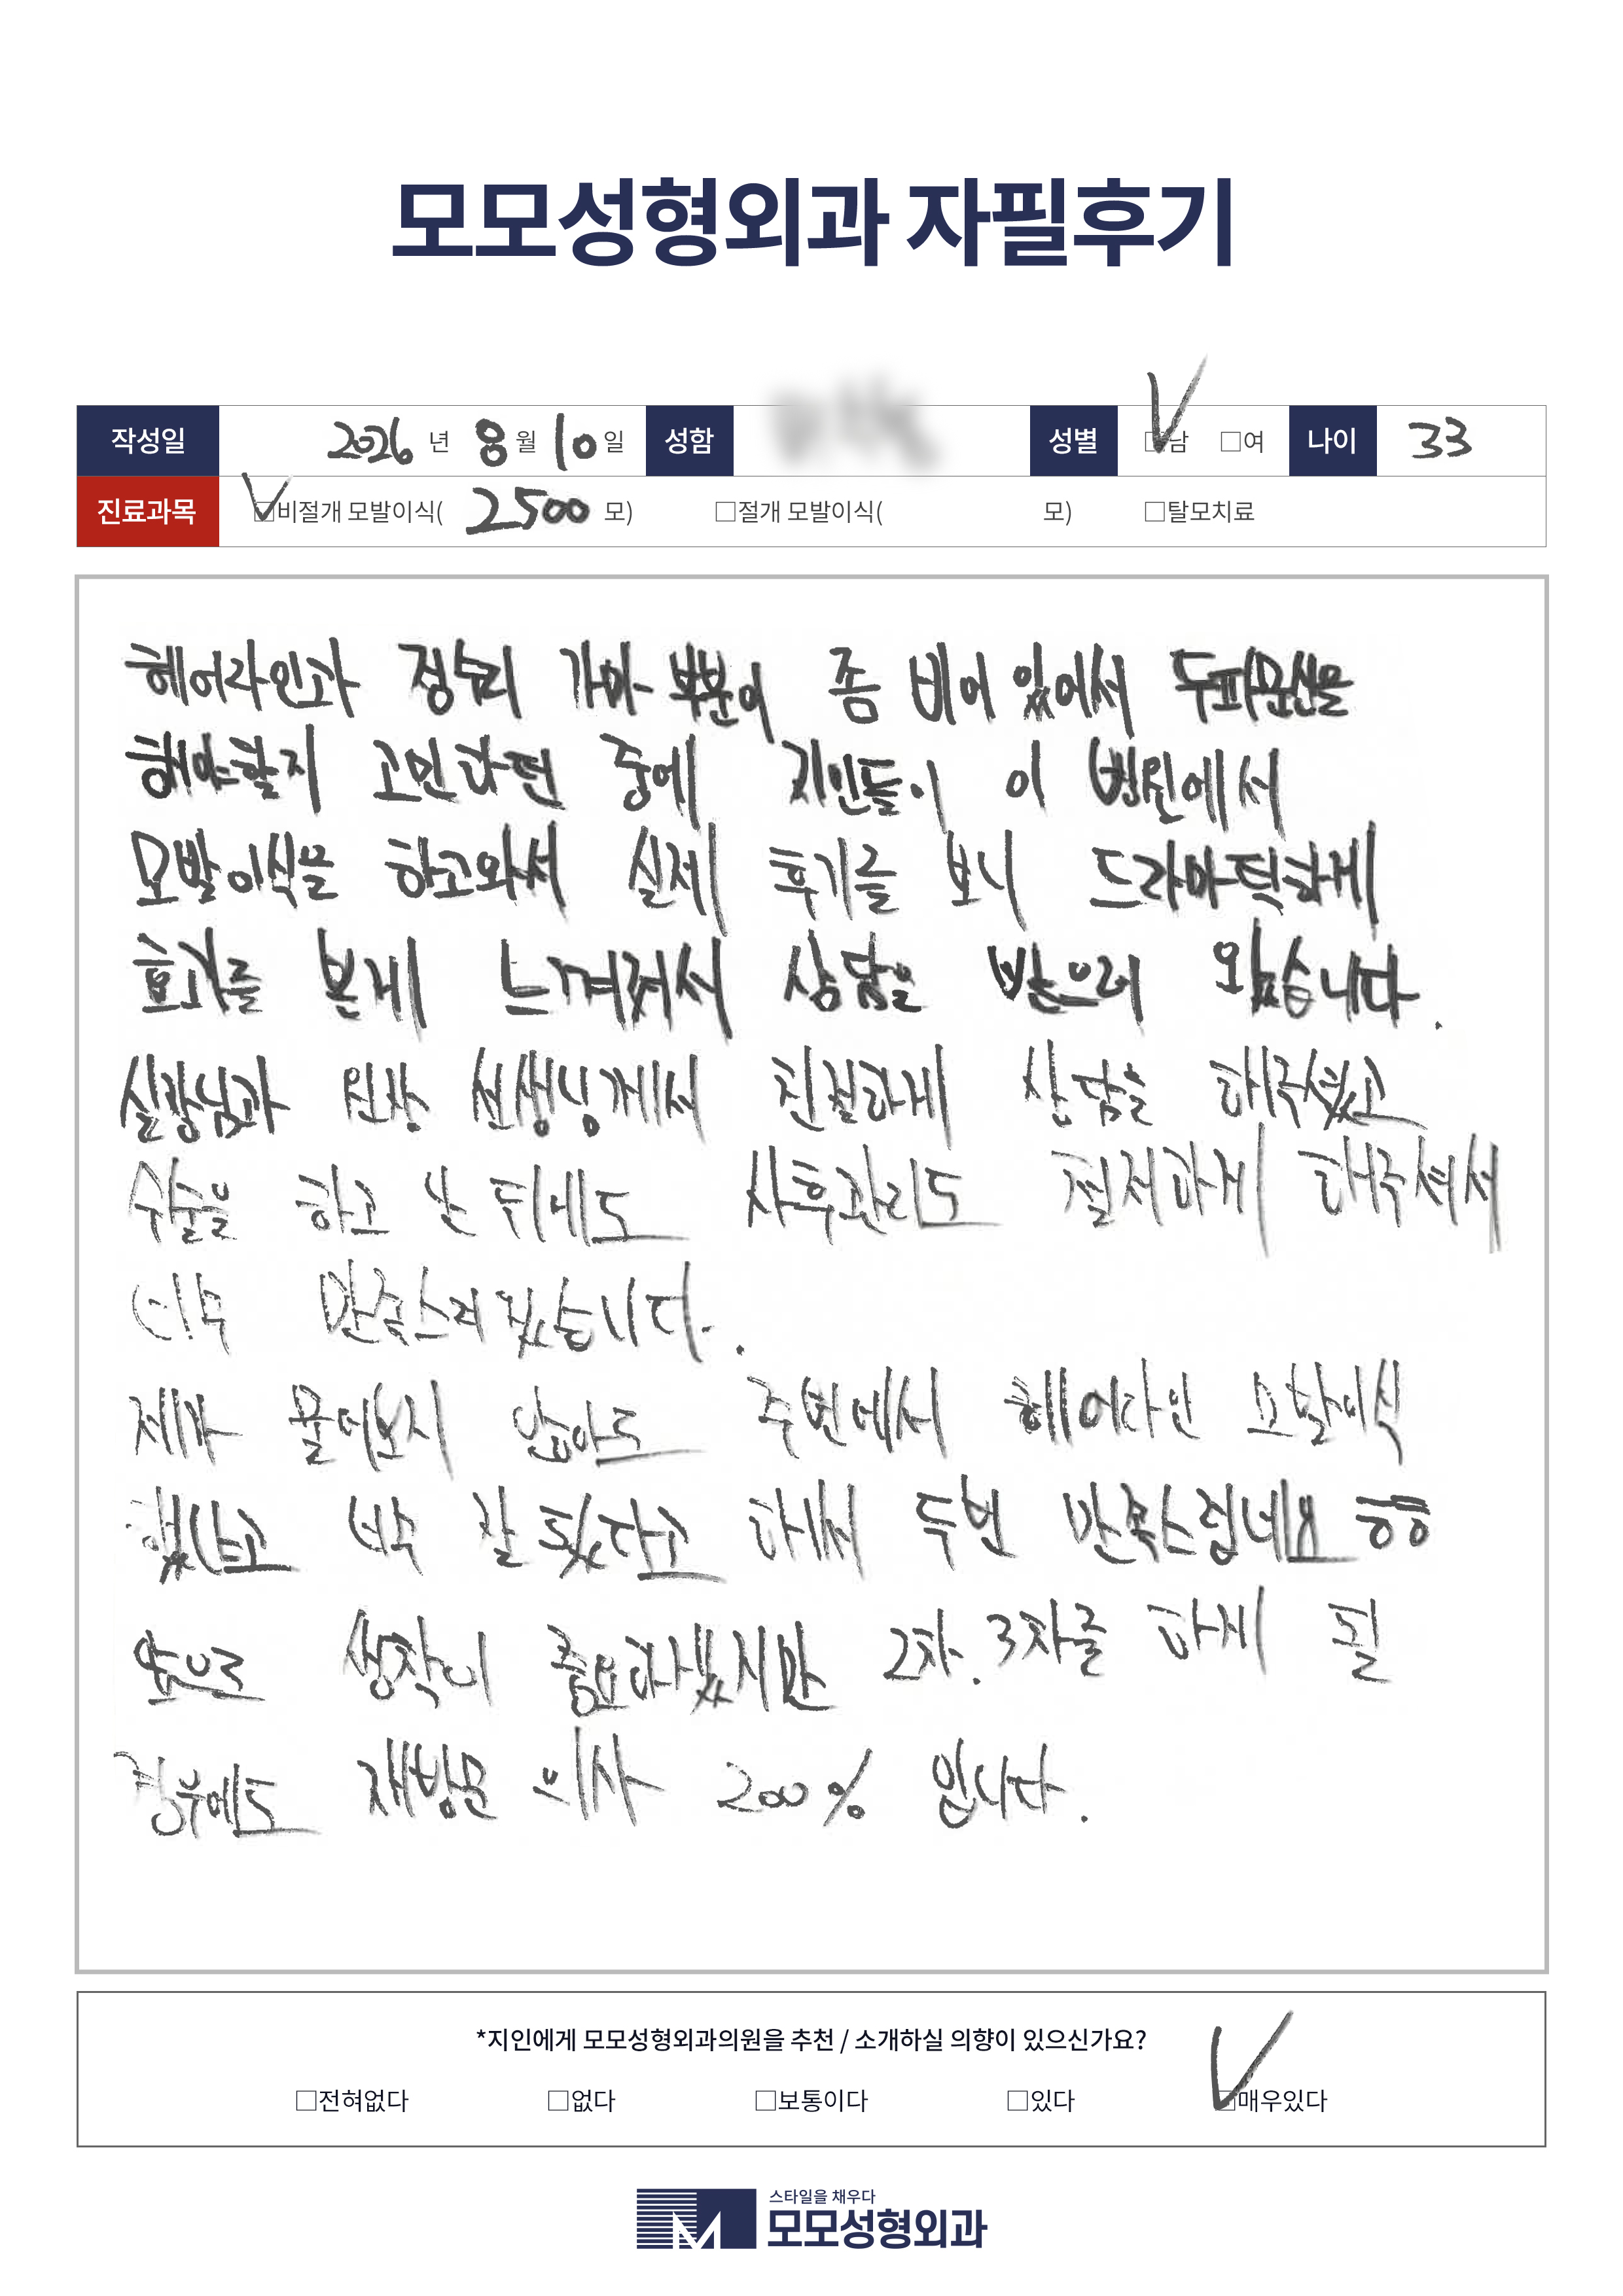 모모성형외과 자필후기
작성일 2026 년 8 월 10 일 성함 성별 □남 □여 나이 33
진료과목 □비절개 모발이식( 2500 모) □절개 모발이식( 모) □탈모치료
헤어라인과 정수리 가마 부분이 좀 비어 있어서 두피문신을
해야할지 고민하던 중에 지인들이 이 병원에서
모발이식을 하고와서 실제 후기를 보니 드라마틱하게
효과를 본게 느껴져서 상담을 받으러 왔습니다.
실장님과 원장 선생님께서 친절하게 상담을 해주셨고
수술을 하고 난 뒤에도 사후관리도 철저하게 해주셔서
너무 만족스러웠습니다.
제가 물어보지 않아도 주변에서 헤어라인 모발이식
했냐고 너무 잘 됐다고 해서 두번 만족스럽네요 ㅎㅎ
앞으로 생착이 중요하겠지만 2차. 3차를 하게 될
경우에도 재방문 의사 200% 입니다.
*지인에게 모모성형외과의원을 추천 / 소개하실 의향이 있으신가요?
□전혀없다 □없다 □보통이다 □있다 □매우있다
스타일을 채우다
모모성형외과